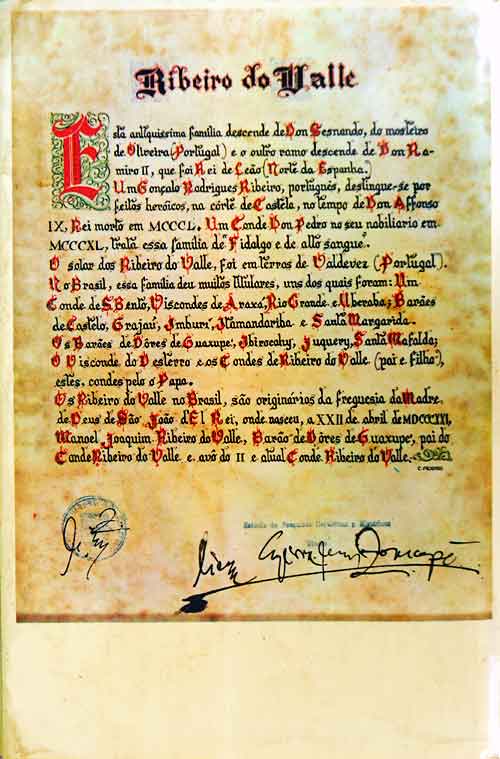 Ribeiro do Valle
Esta antiquissima familia descende de Don Sesnando, do mosteiro
de Oliveira (Portugal) e o outro ramo descende de Don Ra-
miro II, que foi Rei de Leão (Norte da Espanha.)
Um Gonçalo Rodrigues Ribeiro, português, destingue-se por
feitos heroicos, na côrte de Castela, no tempo de Don Affonso
IX, Rei morto em MCCCL, Um Conde Don Pedro no seu nobiliario em
MCCCXL, trata essa familia de Fidalgo e de alto sangue.
O solar dos Ribeiro do Valle, foi em terras de Valdevez (Portugal).
No Brasil, essa familia deu muitos titulares, uns dos quais foram: Um
Conde de S. Bento, Viscondes de Araxa, Rio Grande e Uberaba; Barões
de Castelo, Grajaú, Imburi, Itamandariba e Santa Margarida.
Os Barões de Dôres de Guaxupe, Ibirocahy, Juquery, Santa Mafalda;
O Visconde do Desterro e os Condes de Ribeiro do Valle (pai e filho),
estes, condes pelo o Papa.
Os Ribeiro do Valle no Brasil, são originários da freguesia da Madre
de Deus de São João d'El Rei, onde nasceu, a XXII de abril de MDCCCXXI,
Manoel Joaquim Ribeiro do Valle, Barão de Dôres de Guaxupe, pai do
Conde Ribeiro do Valle e avô do II e atual Conde Ribeiro do Valle.